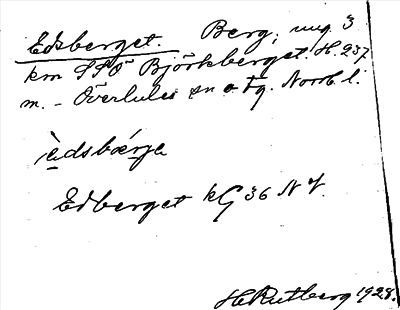 Edsberget. Berg, ung. 3
km SSO Björkberget. H. 237
m. - Överluleå sn o tg. Norrb. l.
èdsbærje
Edberget kG 36 NV.
H Rutberg 1928.